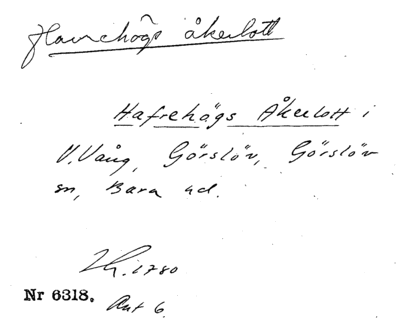 Havrehögs åkerlott
Hafrehägs Åkerlott i
V. Vång, Görslöv, Görslöv
sn, Bara hd.
1780
Nr 6318. Akt 6